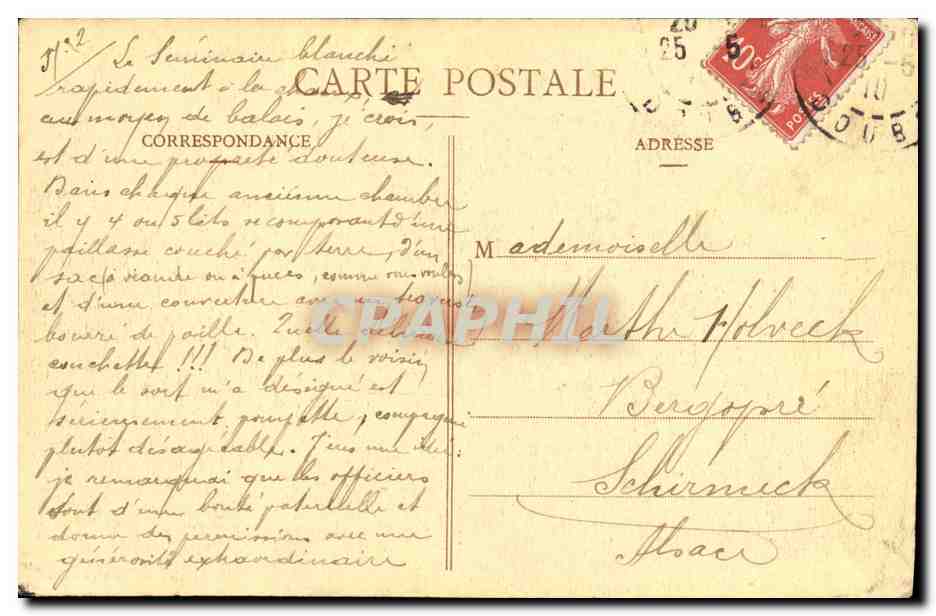 N° 2
Le Séminaire blanchi
rapidement à la chaux
au moyen de balais, je crois,
est d'une propreté douteuse.
Dans chaque ancienne chambre
il y 4 ou 5 lits se composant d'une
paillasse couché par terre, d'un
sac à viande ou à puces, comme vous voulez
et d'une couverture avec un traversin
bourré de paille. Quelle
couchette !!! De plus le voisin
que le sort m'a désigné est
sérieusement pompette, compagnie
plutôt désagréable. J'eus une idée :
je remarquai que les officiers
sont d'une bonté paternelle et
donnent des permissions avec une
générosité extraordinaire
CARTE POSTALE
CORRESPONDANCE
ADRESSE
Mademoiselle
Marthe Holveck
Bergopré
Schirmeck
Alsace
10c
POSTES
25 5
25 - 5
10
DOUBS
CPAPHIL